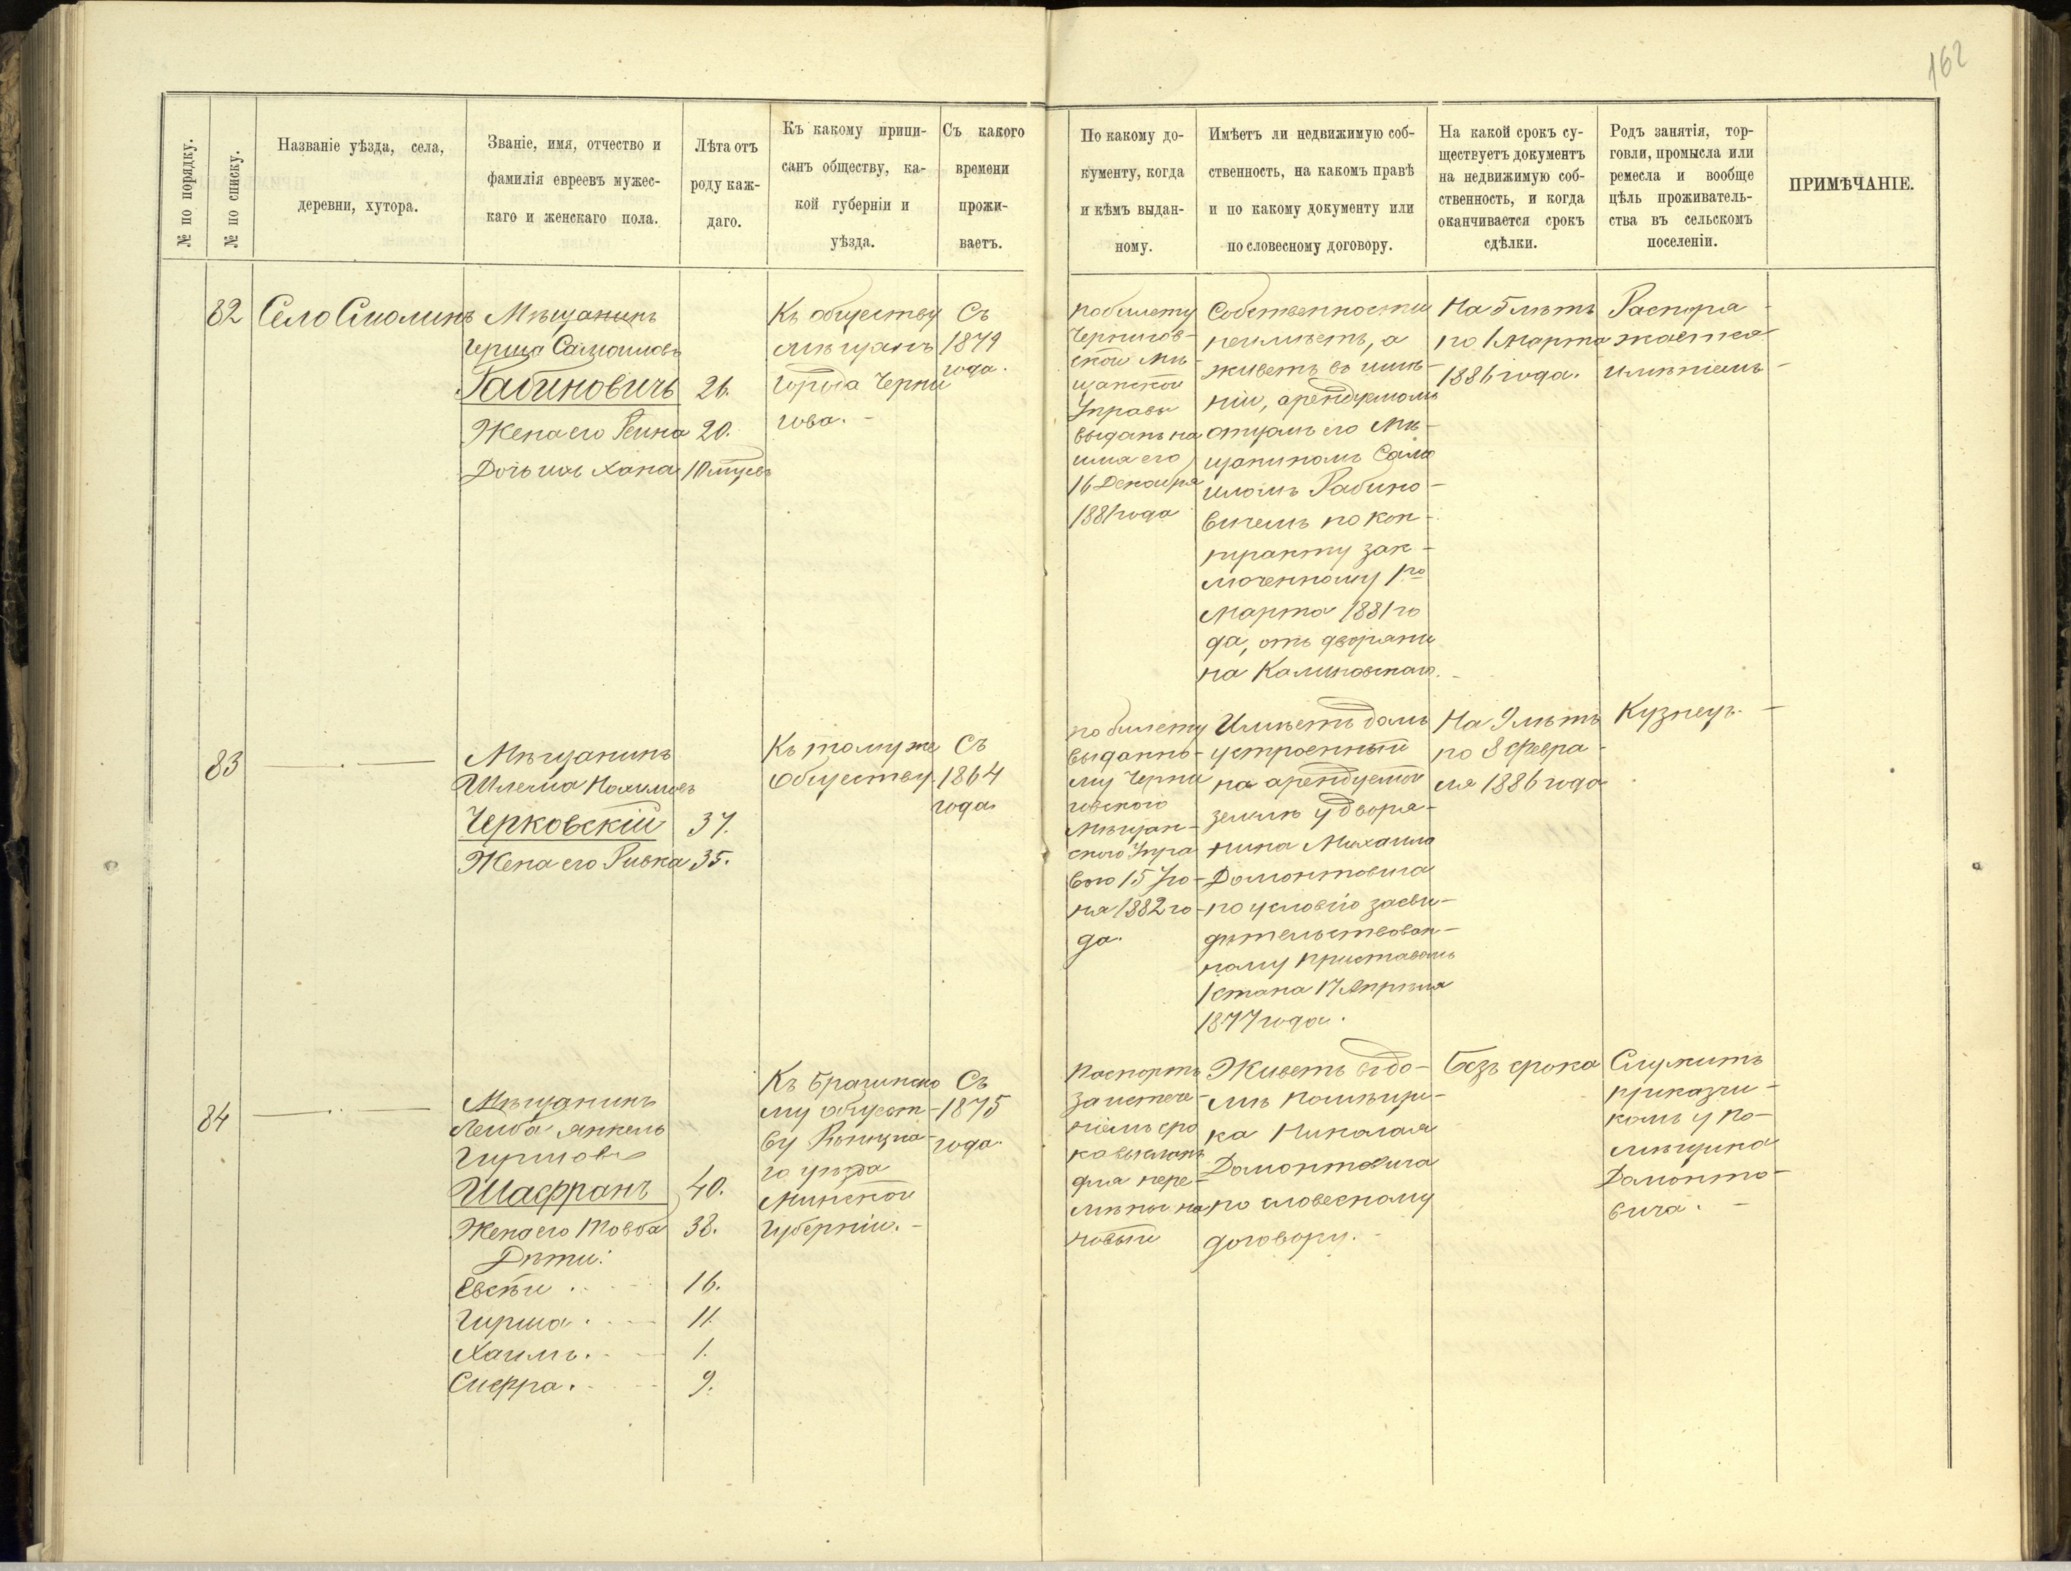 162
№ по порядку.
№ по списку.
Названіе уѣзда, села,
деревни, хутора.
Званіе, имя, отчество и
фамилія евреевъ мужес-
каго и женскаго пола.
Лѣта отъ
роду каж-
даго.
Къ какому припи-
санъ обществу, ка-
кой губерніи и
уѣзда.
Съ какого
времени
прожи-
ваетъ.
По какому до-
кументу, когда
и кѣмъ выдан-
ному.
Имѣетъ ли недвижимую соб-
ственность, на какомъ правѣ
и по какому документу или
по словесному договору.
На какой срокъ су-
ществуетъ документъ
на недвижимую соб-
ственность, и когда
оканчивается срокъ
сдѣлки.
Родъ занятія, тор-
говли, промысла или
ремесла и вообще
цѣль проживатель-
ства въ сельскомъ
поселеніи.
ПРИМѢЧАНІЕ.
82
Село Смолинъ
Мѣщанинъ
Герша Самоиловъ
Рабиновичъ
Жена его
Дочь ихъ Хана
26.
20.
10 мѣсев
Къ обществу
мѣщанъ
города Черни
гова. -
Съ
1879
года.
по билету
Чернигов-
ской мѣ-
щанской
Управы
выданъ на
имя его
16 Декабря
1881 года
Собственности
неимѣетъ, а
живетъ въ имѣ-
ніи, арендуемомъ
отцомъ его мѣ-
щаниномъ Само
иломъ Рабино-
вичемъ по кон-
тракту зак-
люченному 1го
марта 1881 го
да, отъ дворяни
на Калиновскаго.
На 5 лѣтъ
по 1 марта
1886 года.
Распоря-
жается
имѣніемъ -
83
Мѣщанинъ
Шлема Нохимовъ
Черковскій
Жена его Ривка
37.
35.
Къ тому же
обществу.
Съ
1864
года
по билету
выданно-
му Черни
говского
Мѣщан-
ского Упра
вою 15 Ію-
ня 1882 го-
да.
Имѣетъ домъ
устроенный
на арендуемой
землѣ у дворя-
нина Михаила
Домонтовича
по условію засви-
дѣтельствован-
ному приставомъ
1 стана 17 Апрѣля
1877 года.
На 9 лѣтъ
по 8 Февра-
ля 1886 года
Кузнецъ. -
84
Мѣщанинъ
Лейба Янкель
Гиршовъ
Шафранъ
Жена его Товба
Дѣти:
Евсѣй
Гирша
Хаимъ
Сифра
40.
38.
16.
11.
1.
9.
Къ Брагинско
му общест-
ву Рѣчицка-
го уѣзда
Минской
Губерніи. -
Съ
1875
года.
Паспортъ
за истече-
ніемъ сро
ка высланъ
для пере-
мѣны на
новый
Живетъ въ до-
мѣ помѣщи-
ка Николая
Домонтовича
по словесному
договору.
Безъ срока
Служитъ
прикащи-
комъ у по-
мѣщика
Домонто-
вича. -